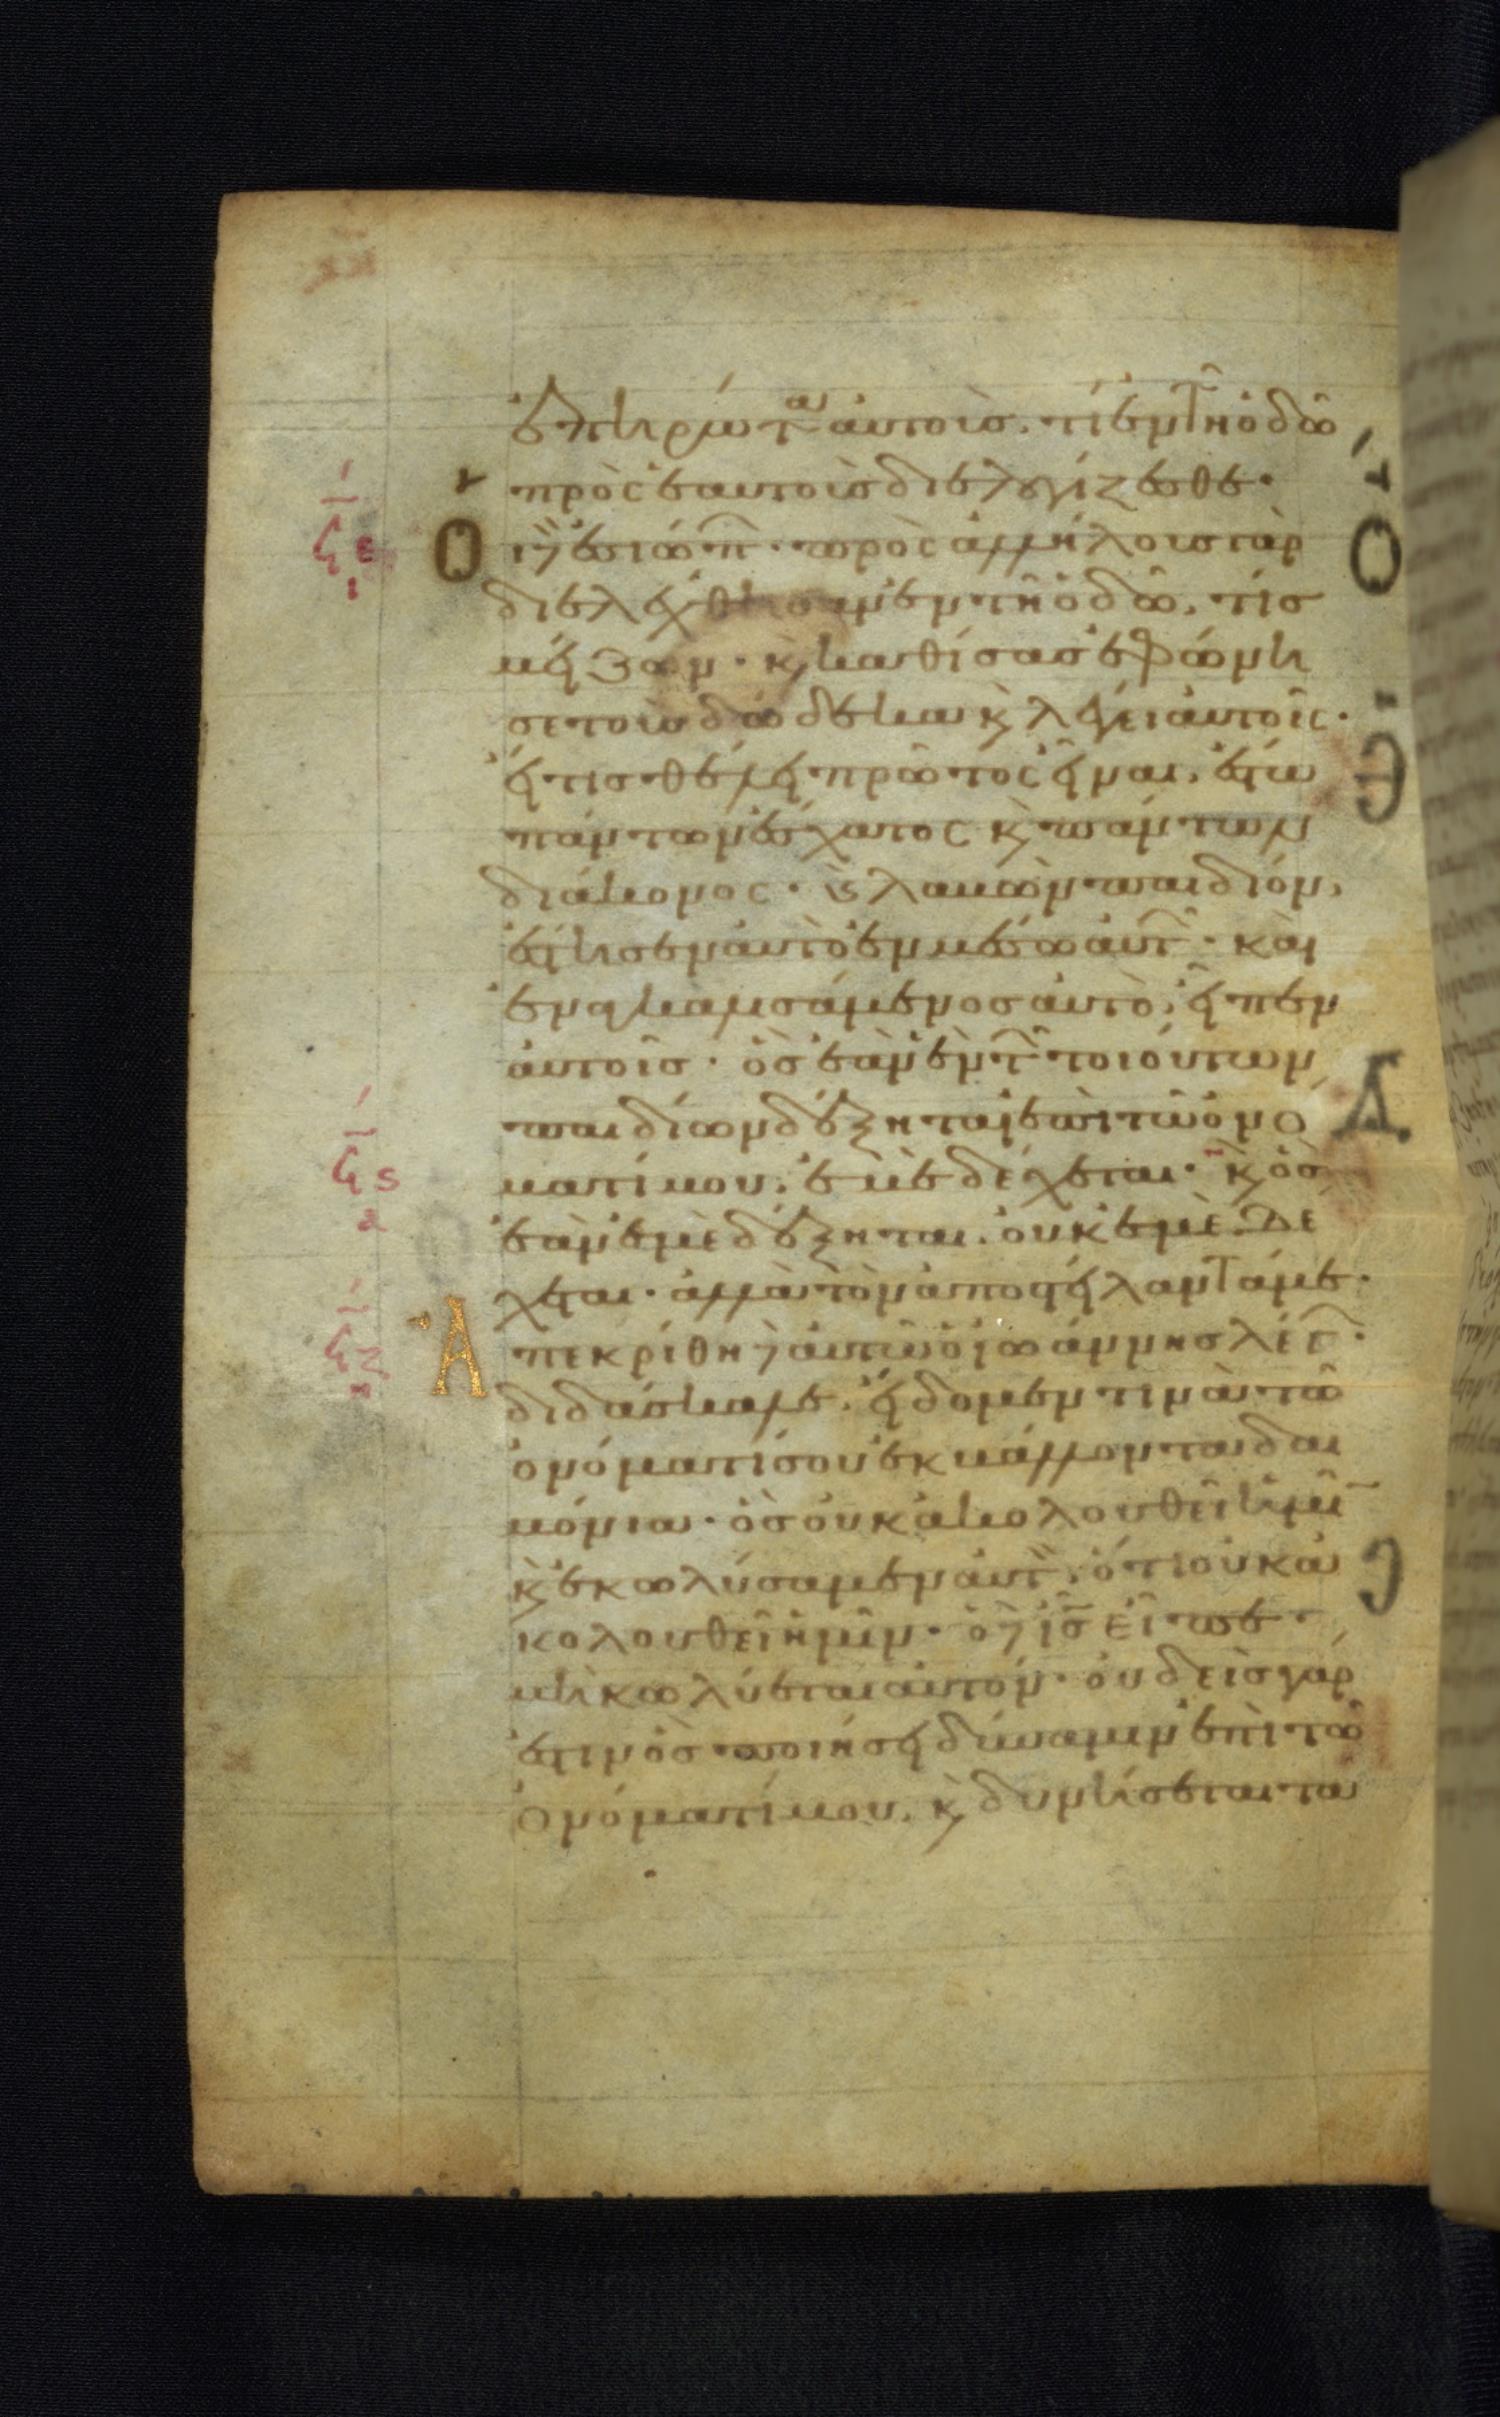 ἐπηρώτα αὐτοὺς. τί ἐν τῆ ὁδῶ
πρὸς ἑαυτοὺς διελογίζεσθε·
Οἱ δὲ ἐσιώπων· πρὸς ἀλλήλους γὰρ
διελέχθησαν ἐν τῆ ὁδῶ, τίς
μείζων· κ καθίσας ἐφώνη
σε τοὺς δώδεκα κ λέγει αὐτοῖς·
εἴ τις θέλει πρῶτος εἶναι, ἔσται
πάντων ἔσχατος κ πάντων
διάκονος· κ λαβὼν παιδίον,
ἔστησεν αὐτὸ ἐν μέσω αὐτῶν· καὶ
ἐναγκαλισάμενος αὐτὸ, εἶπεν
αὐτοῖς· ὃς ἐὰν ἓν τῶν τοιούτων
παιδίων δέξηται ἐπὶ τῶ ὀνό
ματί μου, ἐμὲ δέχεται· κ ὃς
ἐὰν ἐμὲ δέξηται, οὐκ ἐμὲ δέ
χεται· ἀλλὰ τὸν ἀποστείλαντά με·
Ἀπεκρίθη δὲ αὐτῶ ὁ ἰωάννης λέγων·
διδάσκαλε, εἴδομεν τινὰ τῶ
ὀνόματί σου ἐκβάλλοντα δαι
μόνια· ὃς οὐκ ἀκολουθεῖ ἡμῖν
κ ἐκωλύσαμεν αὐτὸν, ὅτι οὐκ ἀ
κολουθεῖ ἡμῖν· ὁ δὲ ις εἶπε·
μὴ κωλύεται αὐτόν· οὐδεὶς γάρ
ἐστιν ὃς ποιήσει δύναμιν ἐπὶ τῶ
ὀνόματί μου, κ δυνήσεται τα